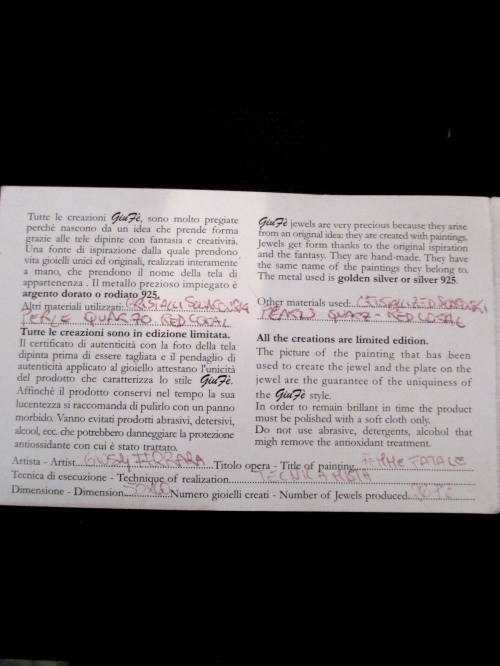 Tutte le creazioni GiuFè, sono molto pregiate
perchè nascono da un idea che prende forma
grazie alle tele dipinte con fantasia e creatività.
Una fonte di ispirazione dalla quale prendono
vita gioielli unici ed originali, realizzati interamente
a mano, che prendono il nome della tela di
appartenenza . Il metallo prezioso impiegato è
argento dorato o rodiato 925.
Altri materiali utilizzati: CRISTALLI SWAROVSKI
PERLE QUARZO RED CORAL
Tutte le creazioni sono in edizione limitata.
Il certificato di autenticità con la foto della tela
dipinta prima di essere tagliata e il pendaglio di
autenticità applicato al gioiello attestano l'unicità
del prodotto che caratterizza lo stile GiuFè.
Affinchè il prodotto conservi nel tempo la sua
lucentezza si raccomanda di pulirlo con un panno
morbido. Vanno evitati prodotti abrasivi, detersivi,
alcool, ecc. che potrebbero danneggiare la protezione
antiossidante con cui è stato trattato.
GiuFè jewels are very precious because they arise
from an original idea: they are created with paintings.
Jewels get form thanks to the original ispiration
and the fantasy. They are hand-made. They have
the same name of the paintings they belong to.
The metal used is golden silver or silver 925.
Other materials used:
QUARZ - RED CORAL
All the creations are limited edition.
The picture of the painting that has been
used to create the jewel and the plate on the
jewel are the guarantee of the uniquiness of
the GiuFè style.
In order to remain brillant in time the product
must be polished with a soft cloth only.
Do not use abrasive, detergents, alcohol that
migh remove the antioxidant treatment.
Artista - Artist GIUSY FERRARA Titolo opera - Title of painting FEMME FATALE
Tecnica di esecuzione - Technique of realization TECNICA MISTA
Dimensione - Dimension Numero gioielli creati - Number of Jewels produced